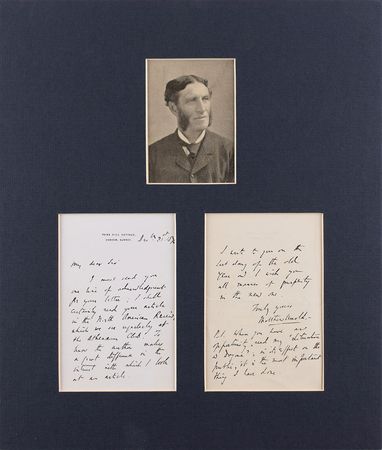 PAINS HILL COTTAGE,
COBHAM, SURREY.
Dec. 31st
My dear Sir
I must send you
one line of acknowledgment
for your letter; I shall
certainly read your article
in the North American Review,
which we see regularly at
the Athenaeum Club. To
know the author makes
a great difference in the
interest with which I look
at an article.
I write to you on the
last day of the old
Year and I wish you
all manner of prosperity
in the new one.
Truly yours
Matthew Arnold.
P.S. When you have an
opportunity, read my "Literature
& Dogma"; in its effect on the
public, it is the most important
thing I have done.